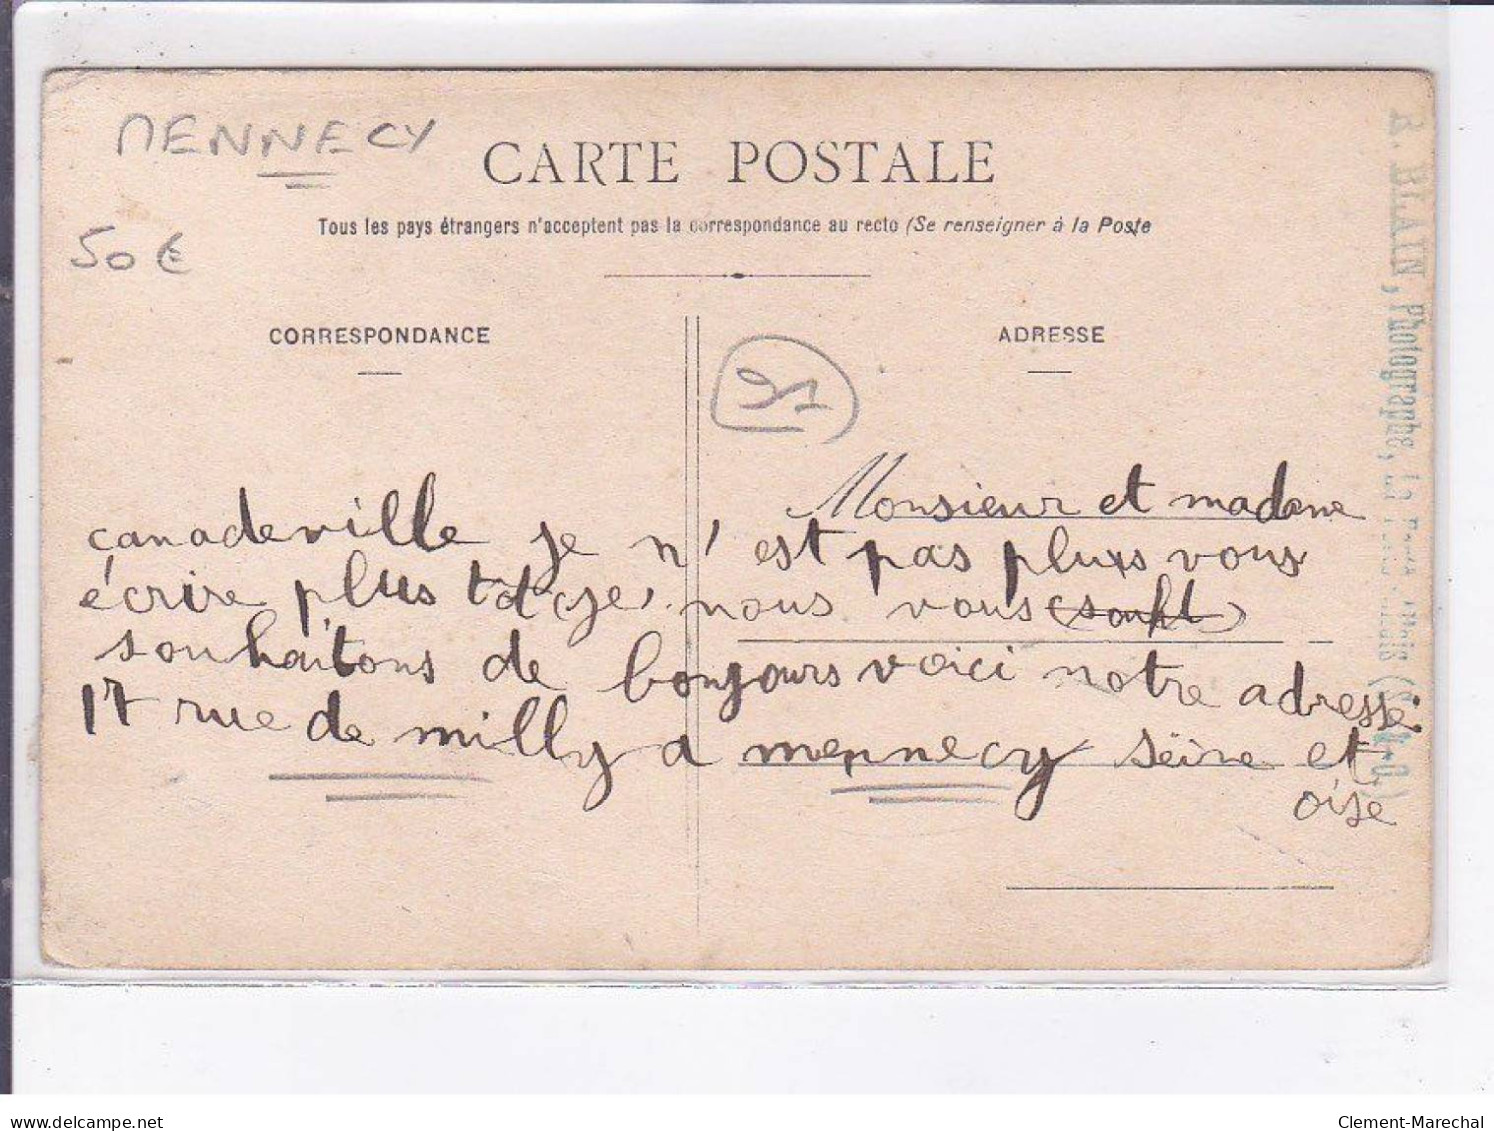 MENNECY
CARTE POSTALE
Tous les pays étrangers n'acceptent pas la correspondance au recto (Se renseigner à la Poste
50 €
CORRESPONDANCE
ADRESSE
91
Monsieur et madame
canadeville je n'est pas pluxs vous
écrire plus tot je, nous vous (souht)
souhaitons de bonjours voici notre adresse
17 rue de milly a mennecy seine et
oise
BLAIN, Photographe, La
delcampe.net
Clement-Marechal